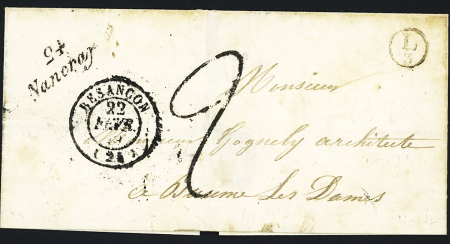 24
Nancray
L
BESANCON
22
FEVR.
(24)
2
Monsieur
architecte
à Baume les Dames